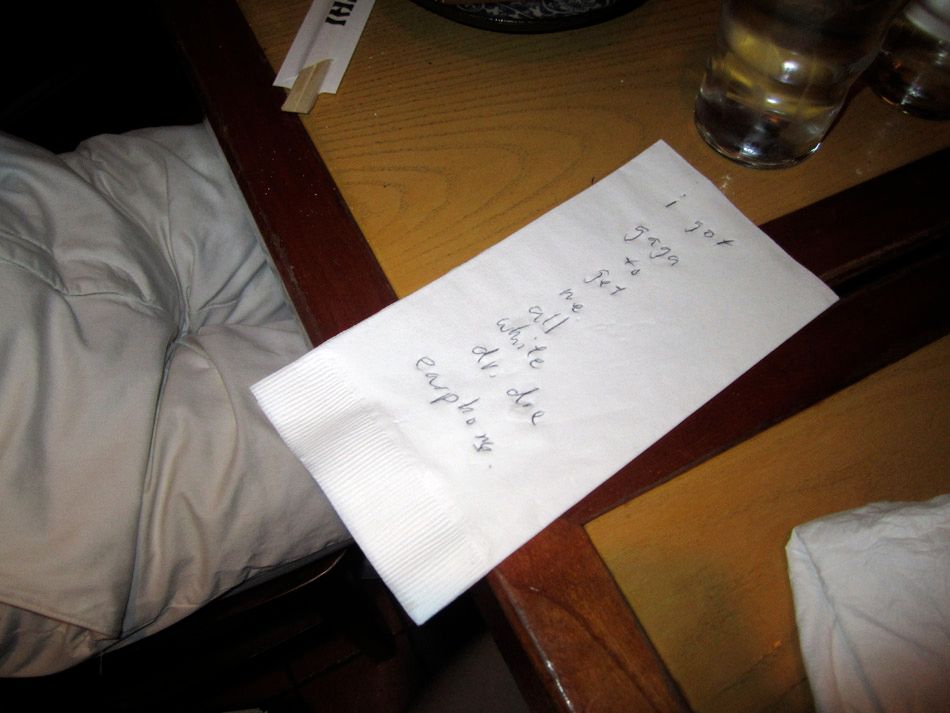 i got
gaga
to
get
me
all
white
dr. dre
earphones.